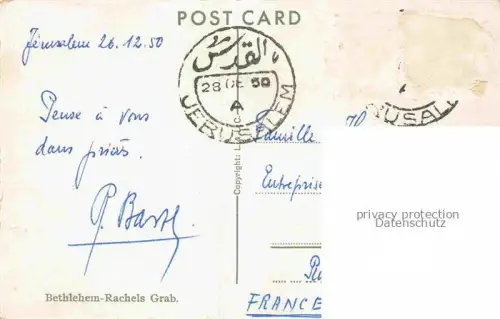 POST CARD
Jérusalem 26.12.50
القدس
28 DE 50
A
JERUSALEM
RUSALE
Pense à vous
dans prières.
Famille
Entreprise
Copyright:
privacy protection
Datenschutz
FRANCE
Bethlehem-Rachels Grab.